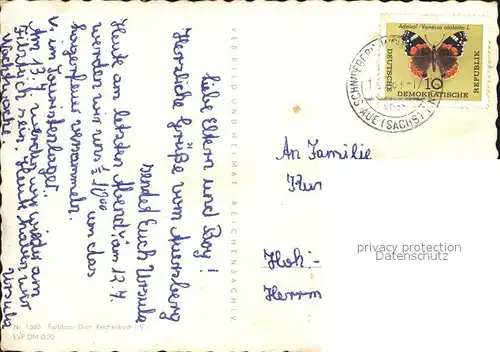 Liebe Eltern und Roy!
Herzliche Grüße vom Auersberg
sendet Euch Ursula
Heute am letzten Abend (am 12.7.
werden wir uns ½ 10⁰⁰ um das
Lagerfeuer versammeln.
im Touristenlager.
Am 13.7. werden wir wieder am
sein. Heute haben wir
Nachtwache.
Ursula
VEB BILD UND HEIMAT REICHENBACH I. V.
Nr. 1560 Farbfoto: Darr, Reichenbach i. V.
EVP DM 0,20
Admiral - Vanessa atalanta L.
DEUTSCHE
DEMOKRATISCHE
REPUBLIK
10
SCHNEEBERG
AUE (SACHS)
An Familie
Kur
Hoh-
Herrm
privacy protection
DelcampeUsers